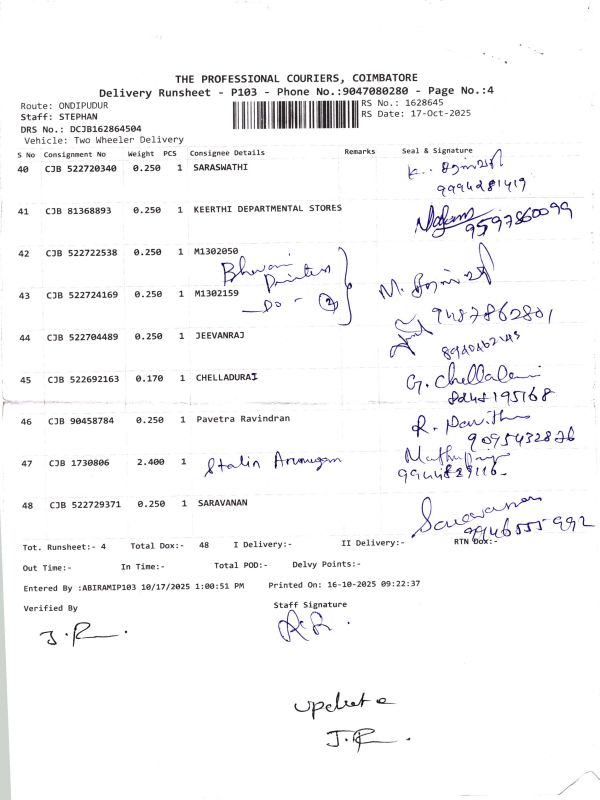 THE PROFESSIONAL COURIERS, COIMBATORE
Delivery Runsheet - P103 - Phone No.:9047080280 - Page No.:4
Route: ONDIPUDUR
RS No.: 1628645
Staff: STEPHAN
RS Date: 17-Oct-2025
DRS No.: DCJB162864504
Vehicle: Two Wheeler Delivery
S No Consignment No Weight PCS Consignee Details Remarks Seal & Signature
40 CJB 522720340 0.250 1 SARASWATHI
9994281419
41 CJB 81368893 0.250 1 KEERTHI DEPARTMENTAL STORES
9597860099
42 CJB 522722538 0.250 1 M1302050
43 CJB 522724169 0.250 1 M1302159
M.
- DO - 2
9487862801
44 CJB 522704489 0.250 1 JEEVANRAJ
45 CJB 522692163 0.170 1 CHELLADURAI
G. Chelladurai
46 CJB 90458784 0.250 1 Pavetra Ravindran
R. Pavithra
9095432876
47 CJB 1730806 2.400 1 Stalin Arumugam
48 CJB 522729371 0.250 1 SARAVANAN
Saravanan
Tot. Runsheet:- 4 Total Dox:- 48 I Delivery:- II Delivery:- RTN Dox:-
Out Time:- In Time:- Total POD:- Delvy Points:-
Entered By :ABIRAMIP103 10/17/2025 1:00:51 PM Printed On: 16-10-2025 09:22:37
Verified By Staff Signature
J.R
update
J.R.